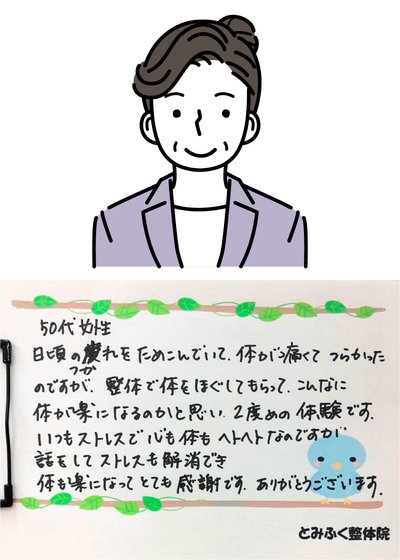 50代 女性
日頃の疲れをためこんでいて、体が痛くて つらかった
つか
のですが、整体で体をほぐしてもらって、こんなに
体が楽になるのかと思い、2度めの体験です。
いつもストレスで心も体もヘトヘトなのですが
話をして ストレスも解消でき
体も楽になって とても感謝です。ありがとうございます。
とみふく整体院